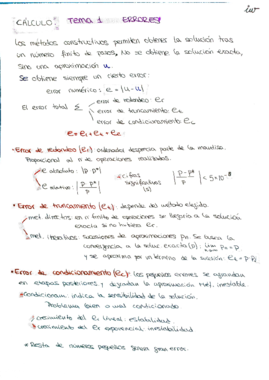 CÁLCULO: TEMA 1 ERRORES
Los métodos constructivos permiten obtener la solución tras
un número finito de pasos. No se obtiene la solución exacta,
sino una aproximación u.
Se obtiene siempre un cierto error:
error numérico: e = |u - u|
El error total Σ
error de redondeo: Er
error de truncamiento: Et
error de condicionamiento Ec
e = Er + Et + Ec
• Error de redondeo (Er) ordenador desprecia parte de la mantisa.
Proporcional al nº de operaciones realizadas.
e absoluto: |p - p*|
e relativo: | p - p* / p |
cifras significativas (s)
| p - p* / p | < 5·10^-s
• Error de truncamiento (Et) depende del método elegido
met directos: en nº finito de operaciones se llegaría a la solución
exacta si no hubiera Er.
met. iterativos: sucesiones de aproximaciones pn. Se busca la
convergencia a la soluc exacta (p) lim n→∞ pn = p
y se aproxima por un término de la sucesión
• Error de condicionamiento (Ec): los pequeños errores se agrandan
en etapas posteriores y degradan la aproximación. Met. inestable
*Condicionam. indica la sensibilidad de la solución.
Problema bien o mal condicionado
crecimiento del Er lineal: estabilidad
crecimiento del Er exponencial: inestabilidad
* Resta de números pequeños genera gran error.